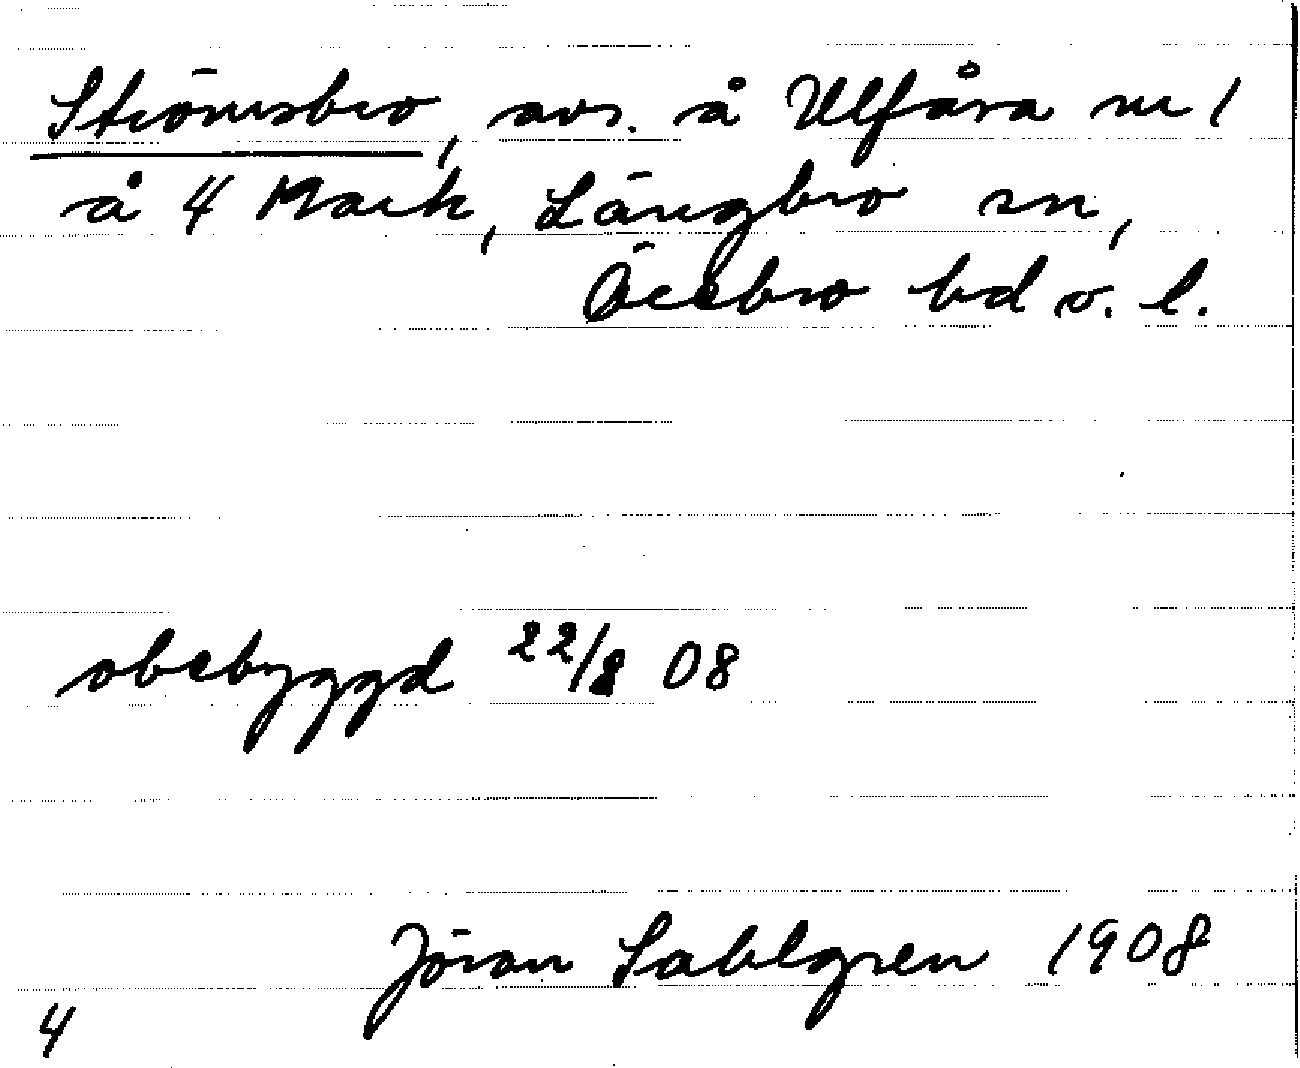 Strömsbro, avs. å Ulfåra nr 1
å 4 Mark, Längbro sn,
Örebro hd o. l.
obebyggd 22/8 08
Jöran Sahlgren 1908
4